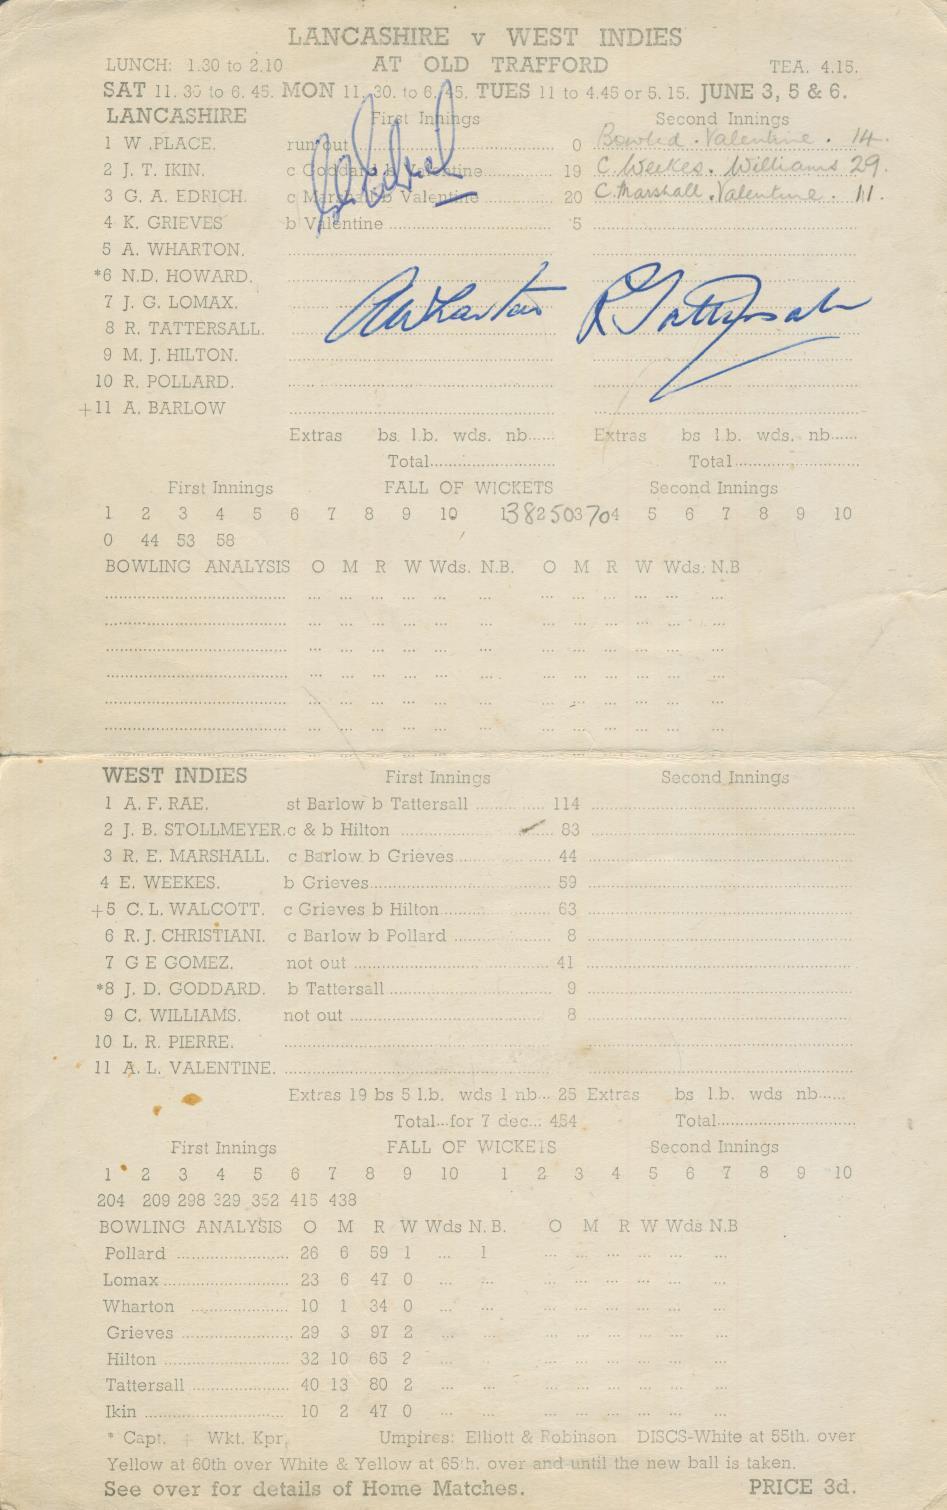 LANCASHIRE v WEST INDIES
LUNCH: 1.30 to 2.10 AT OLD TRAFFORD TEA. 4.15.
SAT 11.30 to 6.45. MON 11.30. to 6.45. TUES 11 to 4.45 or 5.15. JUNE 3, 5 & 6.
LANCASHIRE First Innings Second Innings
1 W .PLACE. run out 0 Bowled . Valentine . 14.
2 J. T. IKIN. c Goddard b Valentine 19 C. Weekes. Williams 29.
3 G. A. EDRICH. c Marshall b Valentine 20 C. Marshall . Valentine . 11.
4 K. GRIEVES b Valentine 5
5 A. WHARTON.
*6 N.D. HOWARD.
7 J. G. LOMAX.
8 R. TATTERSALL. A Wharton R Tattersall
9 M. J. HILTON.
10 R. POLLARD.
+11 A. BARLOW
Extras bs. l.b. wds. nb...... Extras bs l.b. wds. nb......
Total Total
First Innings FALL OF WICKETS Second Innings
1 2 3 4 5 6 7 8 9 10 1 38 2 50 3 70 4 5 6 7 8 9 10
0 44 53 58
BOWLING ANALYSIS O M R W Wds. N.B. O M R W Wds. N.B
WEST INDIES First Innings Second Innings
1 A. F. RAE. st Barlow b Tattersall 114
2 J. B. STOLLMEYER. c & b Hilton 83
3 R. E. MARSHALL. c Barlow b Grieves 44
4 E. WEEKES. b Grieves 59
+5 C. L. WALCOTT. c Grieves b Hilton 63
6 R. J. CHRISTIANI. c Barlow b Pollard 8
7 G E GOMEZ. not out 41
*8 J. D. GODDARD. b Tattersall 9
9 C. WILLIAMS. not out 8
10 L. R. PIERRE.
11 A. L. VALENTINE.
Extras 19 bs 5 l.b. wds 1 nb... 25 Extras bs l.b. wds nb......
Total...for 7 dec... 454 Total
First Innings FALL OF WICKETS Second Innings
1 2 3 4 5 6 7 8 9 10 1 2 3 4 5 6 7 8 9 10
204 209 298 329 352 415 438
BOWLING ANALYSIS O M R W Wds N. B. O M R W Wds N.B
Pollard 26 6 59 1 ... 1
Lomax 23 6 47 0
Wharton 10 1 34 0
Grieves 29 3 97 2
Hilton 32 10 65 2
Tattersall 40 13 80 2
Ikin 10 2 47 0
* Capt. + Wkt. Kpr. Umpires: Elliott & Robinson DISCS-White at 55th. over
Yellow at 60th over White & Yellow at 65th. over and until the new ball is taken.
See over for details of Home Matches. PRICE 3d.